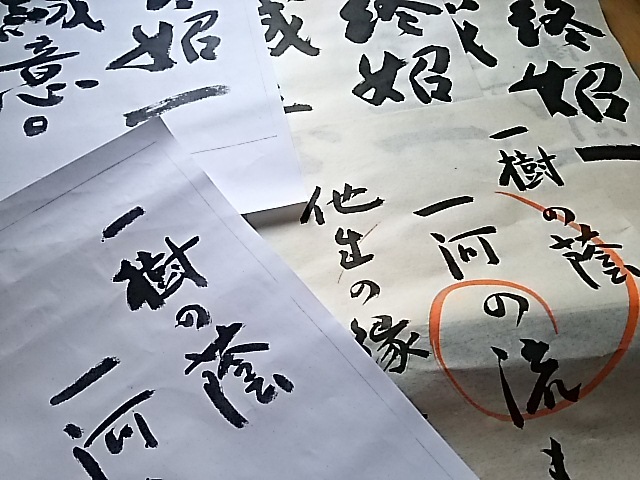 終始一
終始
一樹の蔭
一河の流
他生の縁
始一
誠意。
一樹の蔭
一河